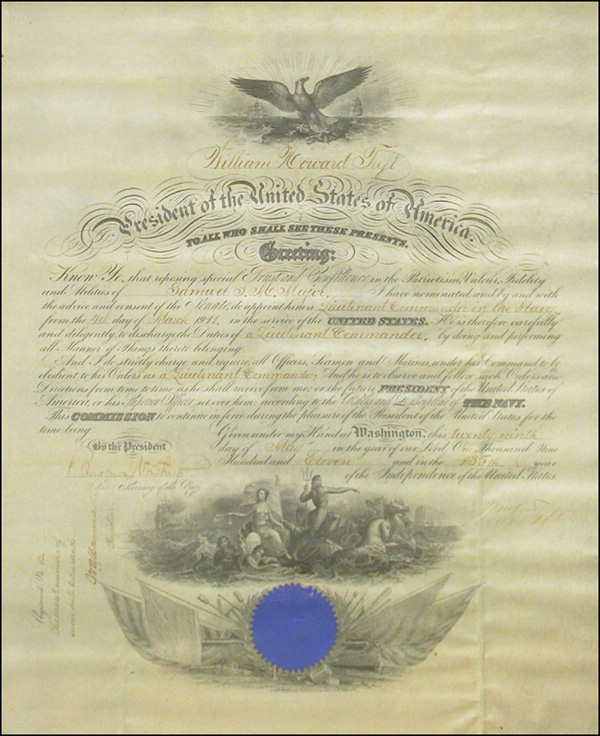 William Howard Taft
President of the United States of America.
TO ALL WHO SHALL SEE THESE PRESENTS,
Greeting:
Know Ye, that reposing special Trust and Confidence in the Patriotism, Valour, Fidelity
and Abilities of Samuel I. M. Major, I have nominated, and by and with
the advice and consent of the Senate, do appoint him a Lieutenant Commander in the Navy
from the 4th day of March 1911, in the service of the UNITED STATES. He is therefore carefully
and diligently to discharge the Duties of a Lieutenant Commander, by doing and performing
all Manner of Things thereto belonging.
And I do strictly charge and require all Officers, Seamen and Marines under his Command to be
obedient to his Orders as a Lieutenant Commander. And he is to observe and follow such Orders and
Directions from time to time as he shall receive from me, or the future PRESIDENT of the United States of
America, or his Superior Officer set over him, according to the Rules and Discipline of THE NAVY.
This COMMISSION to continue in force during the pleasure of the President of the United States for the
time being.
Given under my Hand at Washington, this twenty ninth
By the President
day of in the year of our Lord One Thousand Nine
Hundred and Eleven and in the 135th year
of the Independence of the United States
Secretary of the Navy